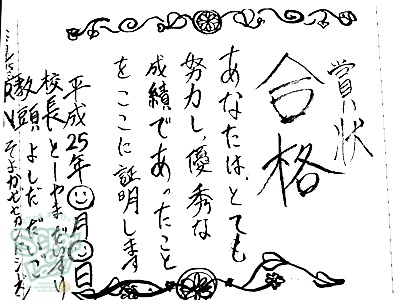 賞状
合格
あなたは、とても
努力し、優秀な
成績であったこと
をここに証明します
平成25年月日
校長とーやまだ
教頭よしだだ